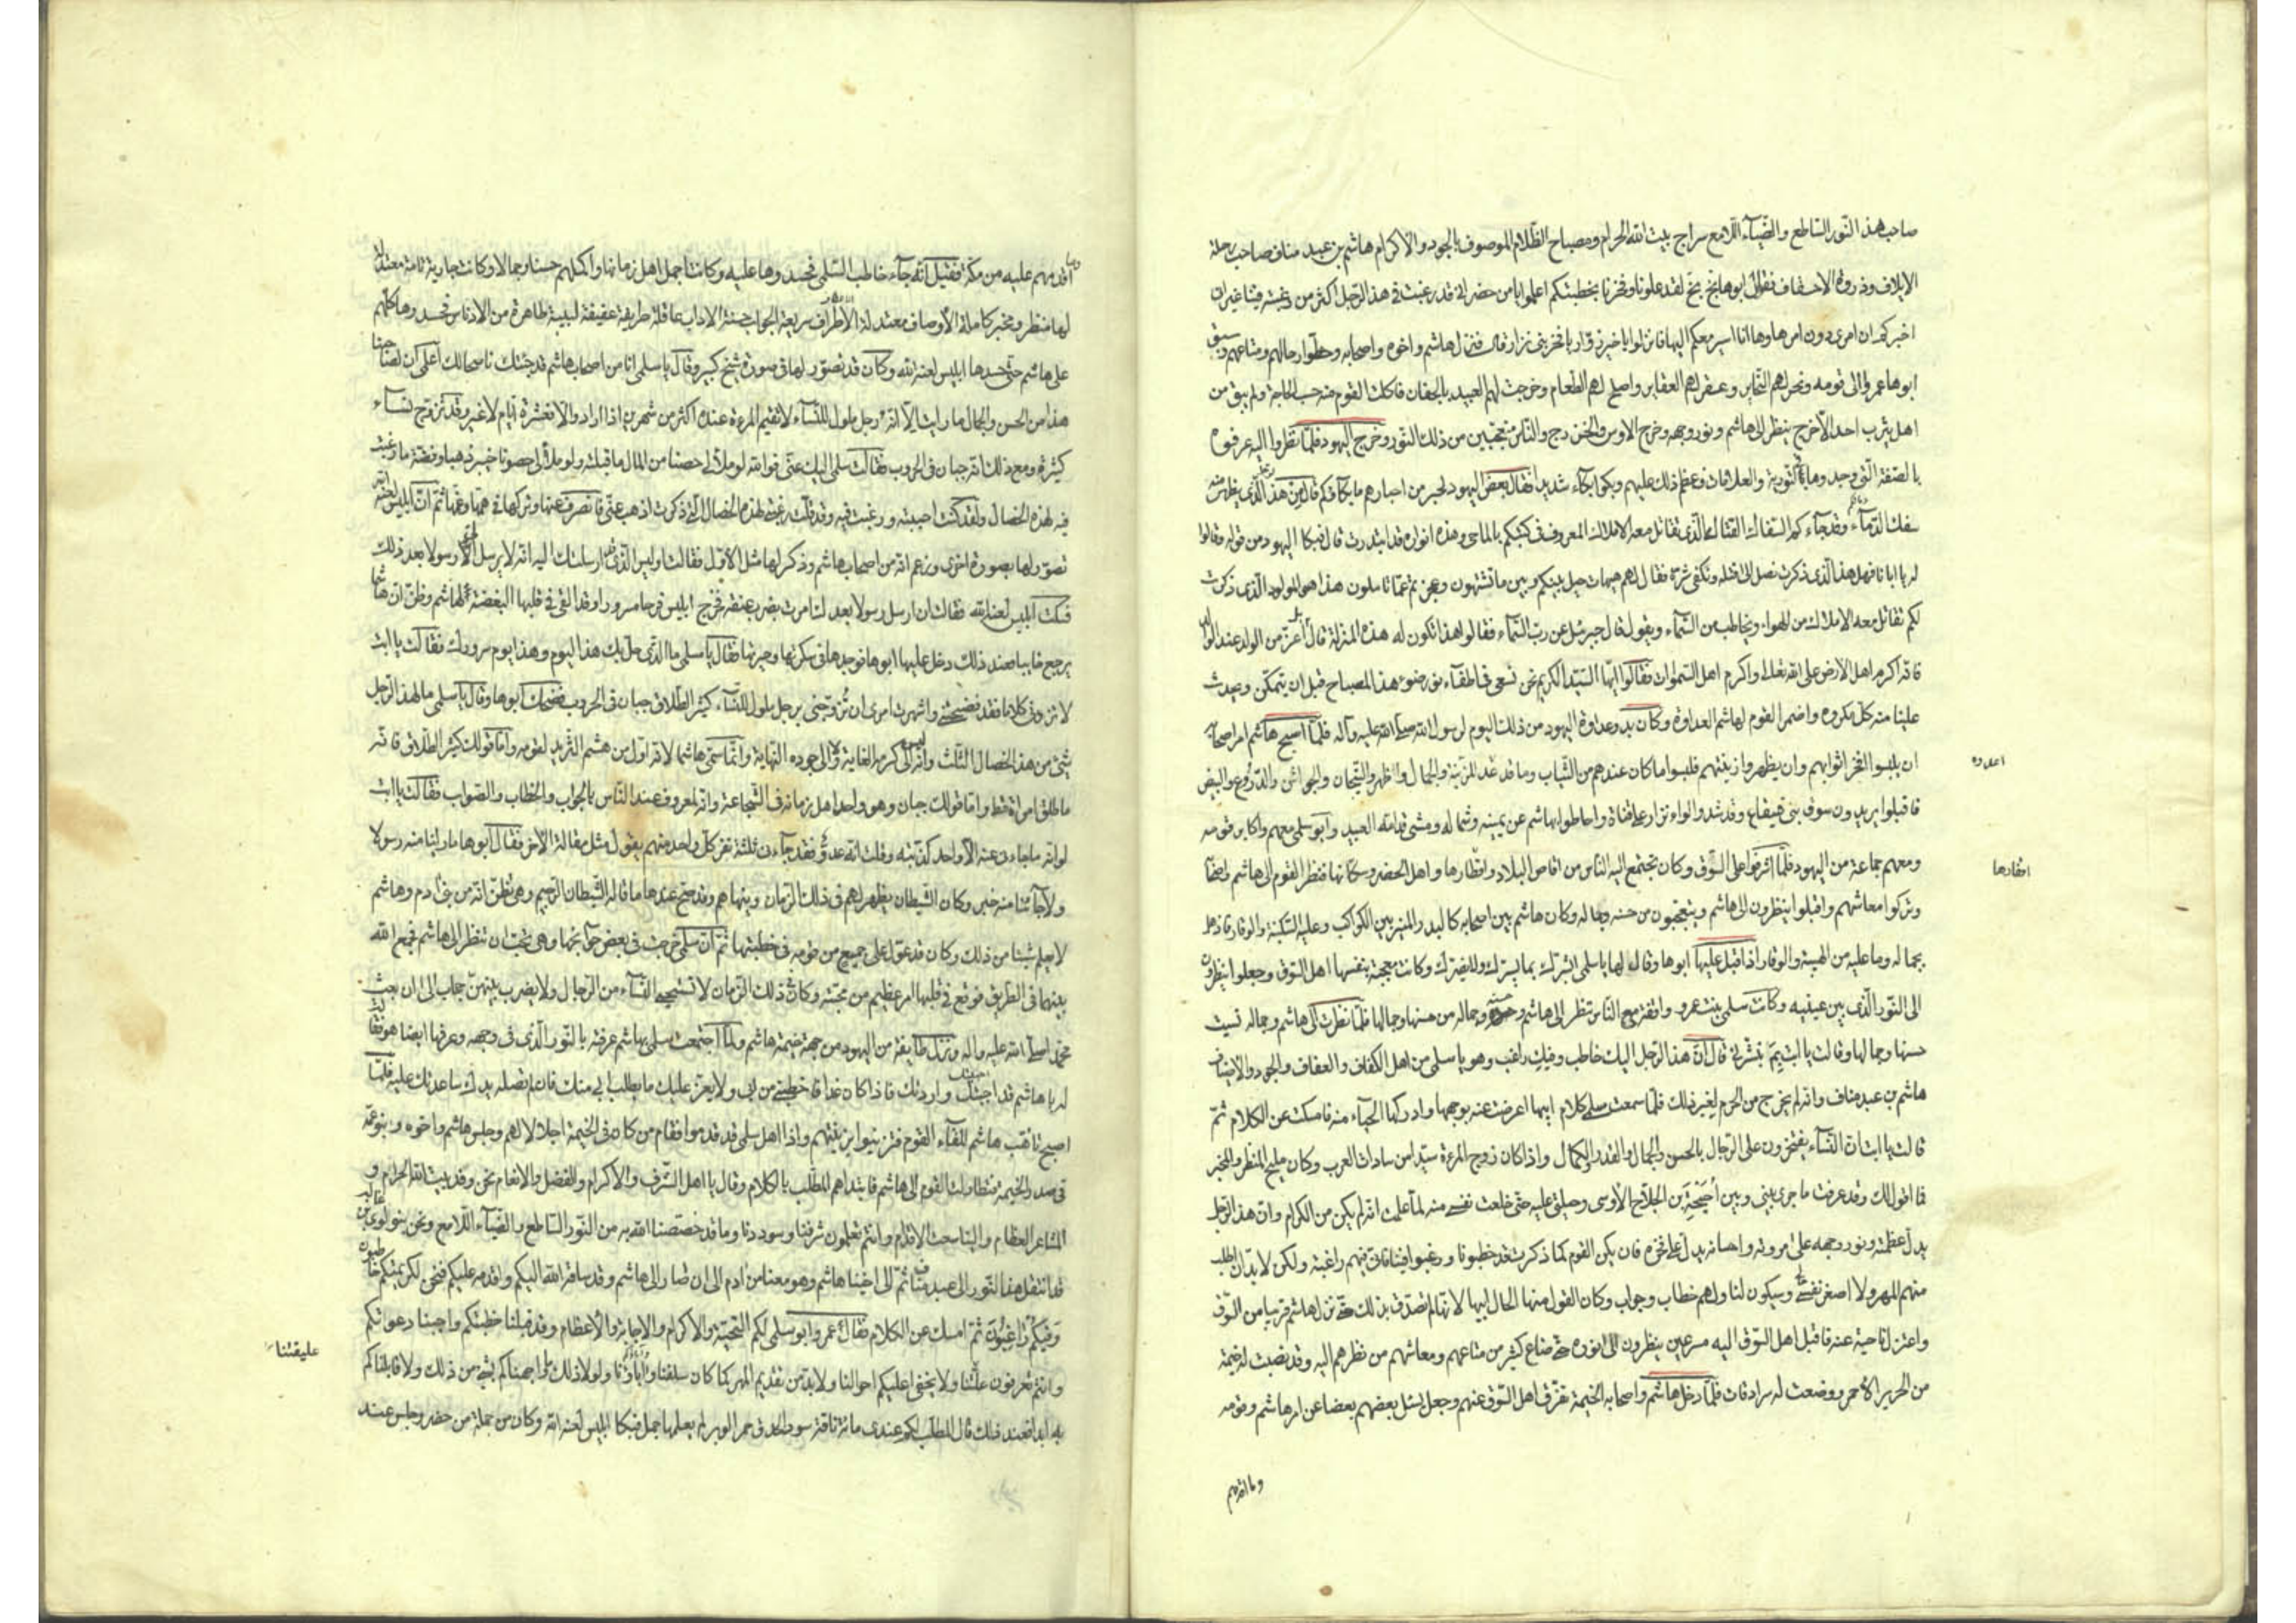 صاحب هذا النور الساطع والضيآء اللامع سراج بيت الله الحرام ومصباح الظلام الموصوف بالجود والاكرام هاشم بن عبد مناف صاحب رحلة
الايلاف وذروة الاحقاف فقال ابوها بخ بخ لقد علونا وفخرنا بخطبتكم اعلموا يا من حضر انى قد رغبت فى هذا الرجل اكثر من رغبته فينا غير ان
اخبركم ان امرى دون امرها وها انا اسير معكم اليها فانزلوا يا خير زوار يا فخر بنى نزار قال فنزل هاشم واخوه واصحابه وحطوا رحالهم ومتاعهم وسبق
ابوها عمرو الى قومه ونحر لهم النحاير وعقر لهم العقاير واصلح لهم الطعام وخرجت لهم العبيد بالجفان فاكلت القوم منه حسب الحاجة ولم يبق من
اهل يثرب احد الا خرج ينظر الى هاشم ونور وجهه وخرج الاوس والخزرج والناس متعجبين من ذلك النور وخرج اليهود فلما نظروا اليه عرفوه
بالصفة التى وجدوها فى التورية والعلامات فعظم ذلك عليهم وبكوا بكآء شديدا فقال بعض اليهود لحبر من احبارهم ما بكاؤكم قال من هذا الرجل الذى يظهر منه
سفك الدمآء وقد جآءكم السفاك القتال الذى تقاتل معه الاملاك المعروف فى كتبكم بالماحى وهذه انواره قد ابتدرت قال فبكا اليهود من قوله وقالوا
له يا ابانا فهل هذا الذى ذكرت نصل الى قتله ونكفى شره فقال لهم هيهات حيل بينكم وبين ما تشتهون وعجزتم عما تاملون هذا هو المولود الذى ذكرت
لكم تقاتل معه الاملاك من الهواء ويخاطب من السمآء ويقول قال جبرئيل عن رب السمآء فقالوا هذا تكون له هذه المنزلة قال اعز من الولد عند الوالد
فانه اكرم اهل الارض على الله تعالى واكرم اهل السموات فقالوا ايها السيد الكريم نحن نسعى فى اطفآء ضوء هذا المصباح قبل ان يتمكن ويحدث
علينا منه كل مكروه واضمر القوم لهاشم العداوة وكان بدو عداوة اليهود من ذلك اليوم لرسول الله صلى الله عليه وآله فلما اصبح هاشم امر اصحابه
ان يلبسوا افخر اثوابهم وان يظهروا زينتهم فلبسوا ما كان عندهم من الثياب وما قد اعدوه للزينة والجمال واظهروا التيجان والجواشن والدروع والبيض
اعدوه
فاقبلوا يريدون سوق بنى قينقاع وقد شدوا لواء نزار على قناة واحاطوا بهاشم عن يمينه وشماله ومشى قدامه العبيد وابو سلمى معهم واكابر قومه
ومعهم جماعة من اليهود فلما اشرفوا على السوق وكان تجتمع اليه الناس من اقاصى البلاد واقطارها واهل الحضر وسكانها فنظر القوم الى هاشم واصحابه
اقطارها
وتركوا معاشهم واقبلوا ينظرون الى هاشم ويتعجبون من حسنه وجماله وكان هاشم بين اصحابه كالبدر المنير بين الكواكب وعليه السكينة والوقار فاذهل
بجماله وما عليه من الهيبة والوقار اذ اقبل عليها ابوها وقال لها يا سلمى ابشرك بما يسرك ولا يضرك وكانت معجبة بنفسها اهل السوق وجعلوا ينظرون
الى النور الذى بين عينيه وكانت سلمى بنت عمرو واقفة مع الناس تنظر الى هاشم وحسنه وجماله من حسنها وجمالها فلما نظرت الى هاشم وجماله نسيت
حسنها وجمالها وقالت يا ابت بم تبشرنى قال ان هذا الرجل اليك خاطب وفيك راغب وهو يا سلمى من اهل الكفاف والعفاف والجود والاضياف
هاشم بن عبد مناف وانه لم يخرج من الحرم لغير ذلك فلما سمعت سلمى كلام ابيها اعرضت عنه بوجهها وادركها الحيآء منه فامسكت عن الكلام ثم
قالت يا ابت ان النسآء يفتخرون على الرجال بالحسن والجمال والقد والكمال واذا كان زوج المرءة سيدا من سادات العرب وكان مليح المنظر والمخبر
فما اقول لك وقد عرفت ما جرى بينى وبين احيحة بن الجلاح الاوسى وحيلتى عليه حتى خلعت نفسى منه لما علمت انه لم يكن من الكرام وان هذا الرجل
يدل عظمته ونور وجهه على مروته واحسانه يدل على فخره فان يكن القوم كما ذكرت قد خطبونا ورغبوا فينا فانى فيهم راغبة ولكن لا بد ان اطلب
منهم المهر ولا اصغر نفسى وسيكون لنا ولهم خطاب وجواب وكان القول منها الحال ابيها لانها لم تصدق بذلك حتى نزل هاشم قريبا من السوق
واعتزل ناحية عنه فاقبل اهل السوق اليه مسرعين ينظرون الى نوره حتى ضاع كثير من متاعهم ومعاشهم من نظرهم اليه وقد نصبت له خيمة
من الحرير الاحمر ووضعت له سرادقات فلما دخل هاشم واصحابه الخيمة تفرق اهل السوق عنهم وجعل يسئل بعضهم بعضا عن امر هاشم وقومه
وما اقدمهم
وما اقدمهم عليه من مكة فقيل انه جآء خاطب السلمى فحسدوها عليه وكانت اجمل اهل زمانها واكملهم حسنا وجمالا وكانت جارية تامة معتدلة
لها منظر ومخبر كاملة الاوصاف معتدلة الاطراف سريعة الجواب حسنة الاداب عاقلة ظريفة عفيفة لبيبة طاهرة من الادناس فحسدوها كلهم
على هاشم حتى حسدها ابليس لعنه الله وكان قد تصور لها فى صورة شيخ كبير وقال يا سلمى انا من اصحاب هاشم قد جئتك ناصحا لك اعلمى ان لصاحبنا
هذا من الحسن والجمال ما رايت الا انه رجل ملول للنسآء لا تقيم المرءة عنده اكثر من شهرين اذا اراد والا فعشرة ايام لا غير وقد تزوج نسآء
كثيرة ومع ذلك انه جبان فى الحروب فقالت سلمى اليك عنى فوالله لو ملأ لى حصنا من المال ما قبلته ولو ملأ لى حصون خيبر ذهبا وفضة ما رغبت
فيه لهذه الخصال ولقد كنت احببته ورغبت فيه وقد قلت رغبتى لهذه الخصال التى ذكرت اذهب عنى فانصرف عنها وتركها فى همها وغمها ثم ان ابليس لعنه الله
تصور لها بصورة اخرى وزعم انه من اصحاب هاشم وذكر لها مثل الاول فقالت اوليس الذى قد ارسلتك اليه انه لا يرسل الى رسولا بعد ذلك
فسكت ابليس لعنه الله فقالت ان ارسل رسولا بعدك امرت بضرب عنقه فخرج ابليس فرحا مسرورا وقد القى فى قلبها البغضة لهاشم وظن ان هاشما
يرجع خايبا فعند ذلك دخل عليها ابوها فوجدها فى سكرتها وحيرتها فقال يا سلمى ما الذى حل بك هذا اليوم وهذا يوم سرورك فقالت يا ابت
لا تزدنى كلاما فقد فضحتنى واشهرت امرى ان تزوجنى برجل ملول للنسآء كثير الطلاق جبان فى الحروب فضحك ابوها وقال يا سلمى ما لهذا الرجل
شئ من هذه الخصال الثلث وانه الى كرمه الغاية والى جوده النهاية وانما سمى هاشما لانه اول من هشم الثريد لقومه واما قولك كثير الطلاق فانه
ما طلق امراة قط واما قولك جبان فهو واحد اهل زمانه فى الشجاعة وانه لمعروف عند الناس بالجواب والخطاب والصواب فقالت يا ابت
لو انه ما جاءنى عنه الا واحد كذبته وقلت انه عدو فقد جآءنى ثلثة نفر كل واحد منهم يقول مثل مقالة الاخر فقال ابوها ما راينا منه رسولا
ولا جآئنا منه خبر وكان الشيطان يظهر لهم فى ذلك الزمان وينهاهم وقد صح عندها ما قاله الشيطان الرجيم وهى تظن انه من بنى ادم وهاشم
لا يعلم شيئا من ذلك وكان قد عول على جميع من قومه فى خطبتها ثم ان سلمى خرجت فى بعض حوآئجها وهى تحب ان تنظر الى هاشم فجمع الله
بينهما فى الطريق فوقع فى قلبها امر عظيم من محبته وكان فى ذلك الزمان لا تستحيى النسآء من الرجال ولا يضرب بينهن حجاب الى ان بعث
محمد صلى الله عليه وآله ونزل طايفة من اليهود من جهة خيمة هاشم ولما اجتمعت سلمى بهاشم عرفته بالنور الذى فى وجهه وعرفها ايضا هو فقالت
له يا هاشم قد احببتك واردتك فاذا كان غدا فاخطبنى من ابى ولا يعز عليك ما يطلب ابى منك فان لم تصله يدك ساعدتك عليه فلما
اصبح تاهب هاشم للقآء القوم فتزينوا بزينتهم واذا اهل سلمى قد قدموا فقام من كان فى الخيمة اجلالا لهم وجلس هاشم واخوه وبنو عمه
فى صدر الخيمة فتطاولت القوم الى هاشم فابتداهم المطلب بالكلام وقال يا اهل الشرف والاكرام والفضل والانعام نحن وفد بيت الله الحرام و
المشاعر العظام والينا سعت الاقدام وانتم تعلمون شرفنا وسوددنا وما قد خصصنا الله به من النور الساطع والضيآء اللامع ونحن بنو لوى بن غالب
قد انتقل هذا النور الى عبد مناف ثم الى اخينا هاشم وهو معنا من ادم الى ان صار الى هاشم وقد ساقه الله اليكم واقدمه عليكم فنحن لكريمتكم خاطبون
وفيكم راغبون ثم امسك عن الكلام فقال عمرو ابو سلمى لكم التحية والاكرام والاجابة والاعظام وقد قبلنا خطبتكم واجبنا دعوتكم
عليقتنا
وانتم تعرفون علتنا ولا يخفى عليكم احوالنا ولا بد من تقديم المهر كما كان سلفنا وآباؤنا ولولا ذلك ما واجهناكم بشئ من ذلك ولا قابلناكم
به ابدا فعند ذلك قال المطلب لكم عندى مائة ناقة سود الحدق حمر الوبر لم يعلها جمل فبكا ابليس لعنه الله وكان من جملة من حضر وجلس عند